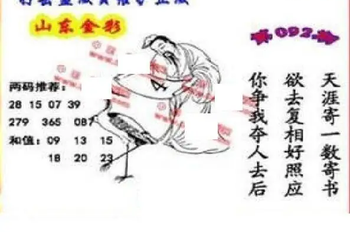 山东金彩
第092期
两码推荐:
28 15 07 39
279 365 087
和值: 09 13 15
18 20 23
4
天涯寄一数寄书
欲去复相好照应
你争我夺人去后